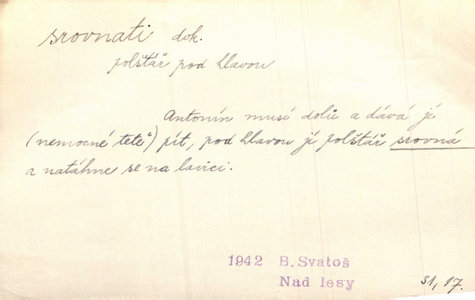 srovnati dok.
polštář pod hlavou
Antonín musí dolů a dává jí
(nemocné tetě) pít, pod hlavou jí polštář srovná
a natáhne se na lavici.
1942 B. Svatoš
Nad lesy
31, 17.